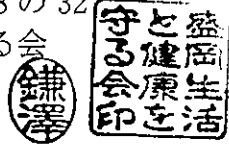 の32
る会
鎌澤
盛岡生活
と健康を
守る会印